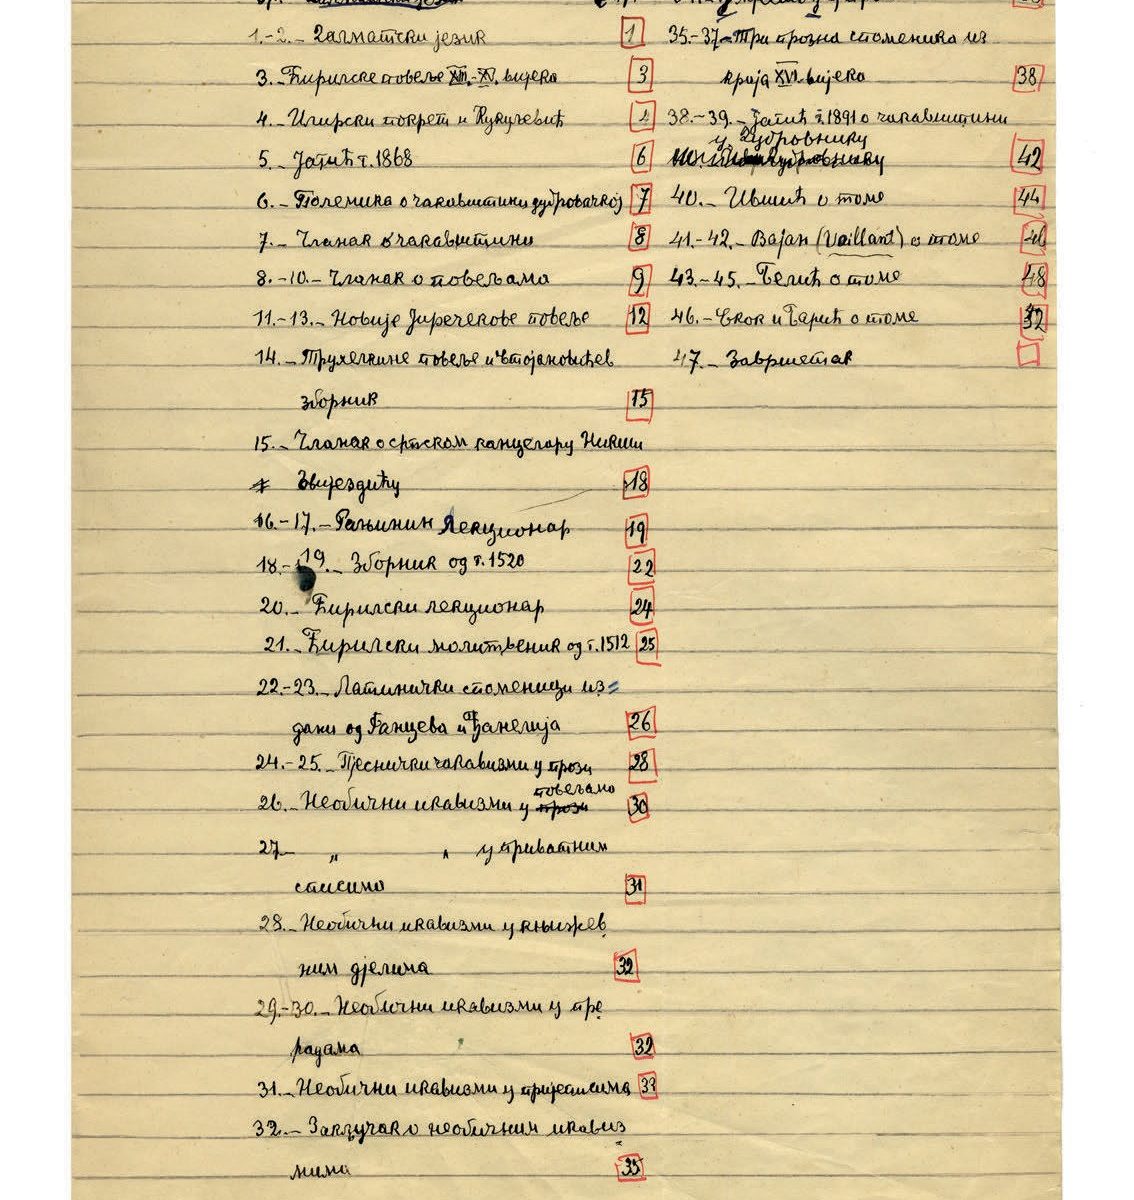 1.-2.- Далматски језик 1
3.- Ћирилске повеље XIII.-XV. вијека 3
4.- Илирски покрет и Кукуљевић 4
5.- Јагић г. 1868 6
6.- Полемика о чакавштини дубровачкој 7
7.- Чланак о чакавштини 8
8.-10.- Чланак о повељама 9
11.-13.- Новије Јиречекове повеље 12
14.- Трухелкине повеље и Стојановићев
зборник 15
15.- Чланак о српском канцелару Никши
Звијездићу 18
16.-17.- Рањинин Лекционар 19
18.-19.- Зборник од г. 1520 22
20.- Ћирилски лекционар 24
21.- Ћирилски молитвеник од г. 1512 25
22.-23.- Латинички споменици из=
дани од Фанцева и Ђанелија 26
24.-25.- Песнички чакавизми у прози 28
26.- Необични икавизми у повељама 30
27.- „ „ у приватним
списима 31
28.- Необични икавизми у књижев
ним дјелима 32
29.-30.- Необични икавизми у пре
радама 32
31.- Необични икавизми у пријеписима 33
32.- Закључак о необичним икавиз
мима 35
35.-37.- Три прозна споменика из
краја XVI. вијека 38
38.-39.- Јагић г. 1891 о чакавштини
у Дубровнику 42
40.- Ившић о томе 44
41.-42.- Вајан (Vaillant) о томе 46
43.-45.- Белић о томе 48
46.- Скок и Барић о томе
47.- Завршетак